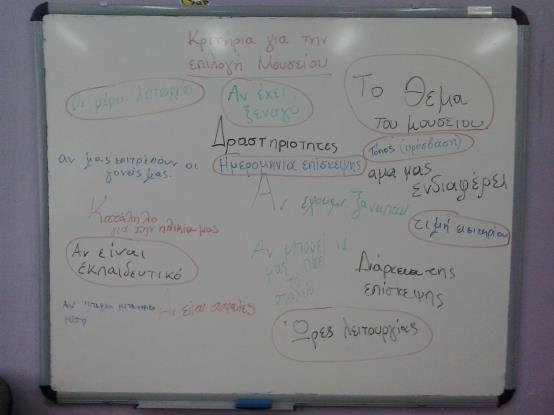 Κριτήρια για την
επιλογή Μουσείου
Οι μέρες λειτουργίας
Αν έχει
ξεναγό
Το Θέμα
του μουσείου
Δραστηριότητες
Ημερομηνία επίσκεψης
Τόπος (πρόσβαση)
αν μας επιτρέπουν οι
γονείς μας.
αμα μας
ενδιαφέρει
Αν έχουμε ξαναπάει
Κατάλληλο
για την ηλικία μας
τιμή εισιτηρίου
Αν είναι
εκπαιδευτικό
Αν μπορεί
μας πάει
το
σχολείο
Διάρκεια της
επίσκεψης
Αν
Αν είναι ασφαλές
Ώρες λειτουργίας